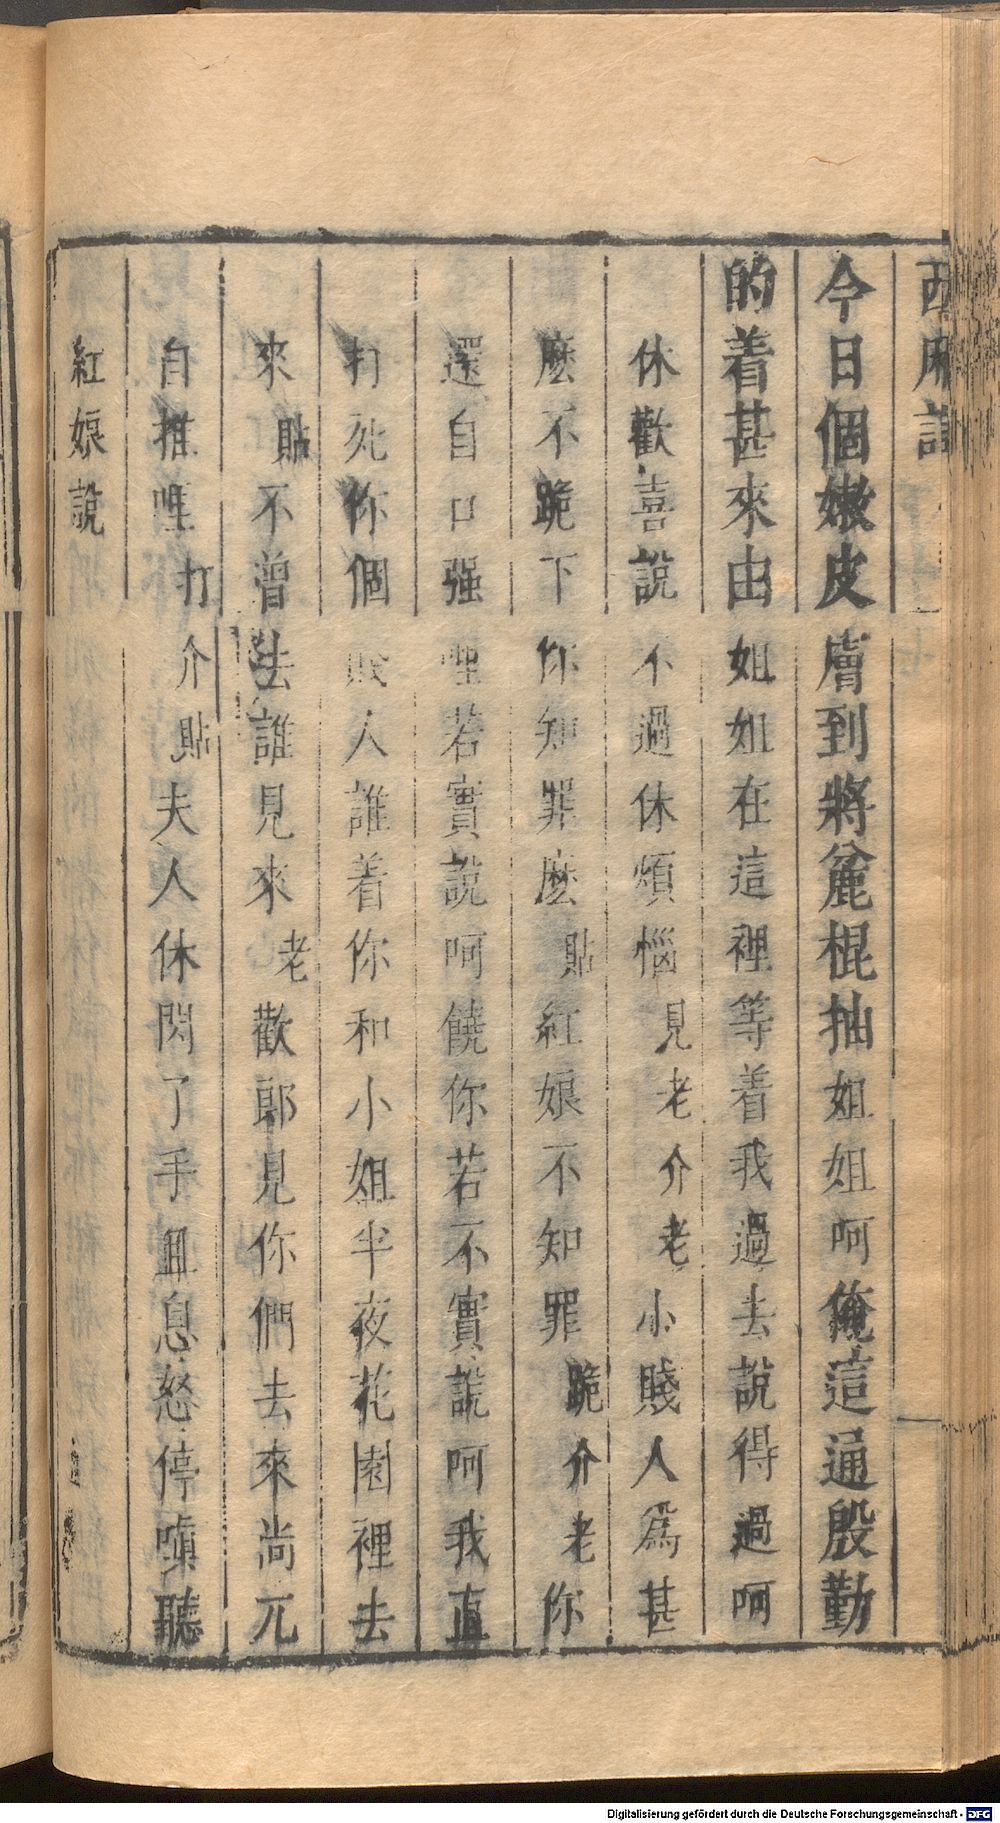 西廂記
今日個嫩皮膚到將麄棍抽姐姐呵俺這通殷勤
的着甚來由姐姐在這裡等着我過去說得過呵
休歡喜說不過休煩惱見老介老小賤人爲甚
麽不跪下你知罪麽貼紅娘不知罪跪介老你
還自口强哩若實說呵饒你若不實說呵我直
打死你個賤人誰着你和小姐半夜花園裡去
來貼不曾去誰見來老歡郎見你們去來尚兀
自推哩打介貼夫人休閃了手且息怒停嗔聽
紅娘說
Digitalisierung gefördert durch die Deutsche Forschungsgemeinschaft - DFG